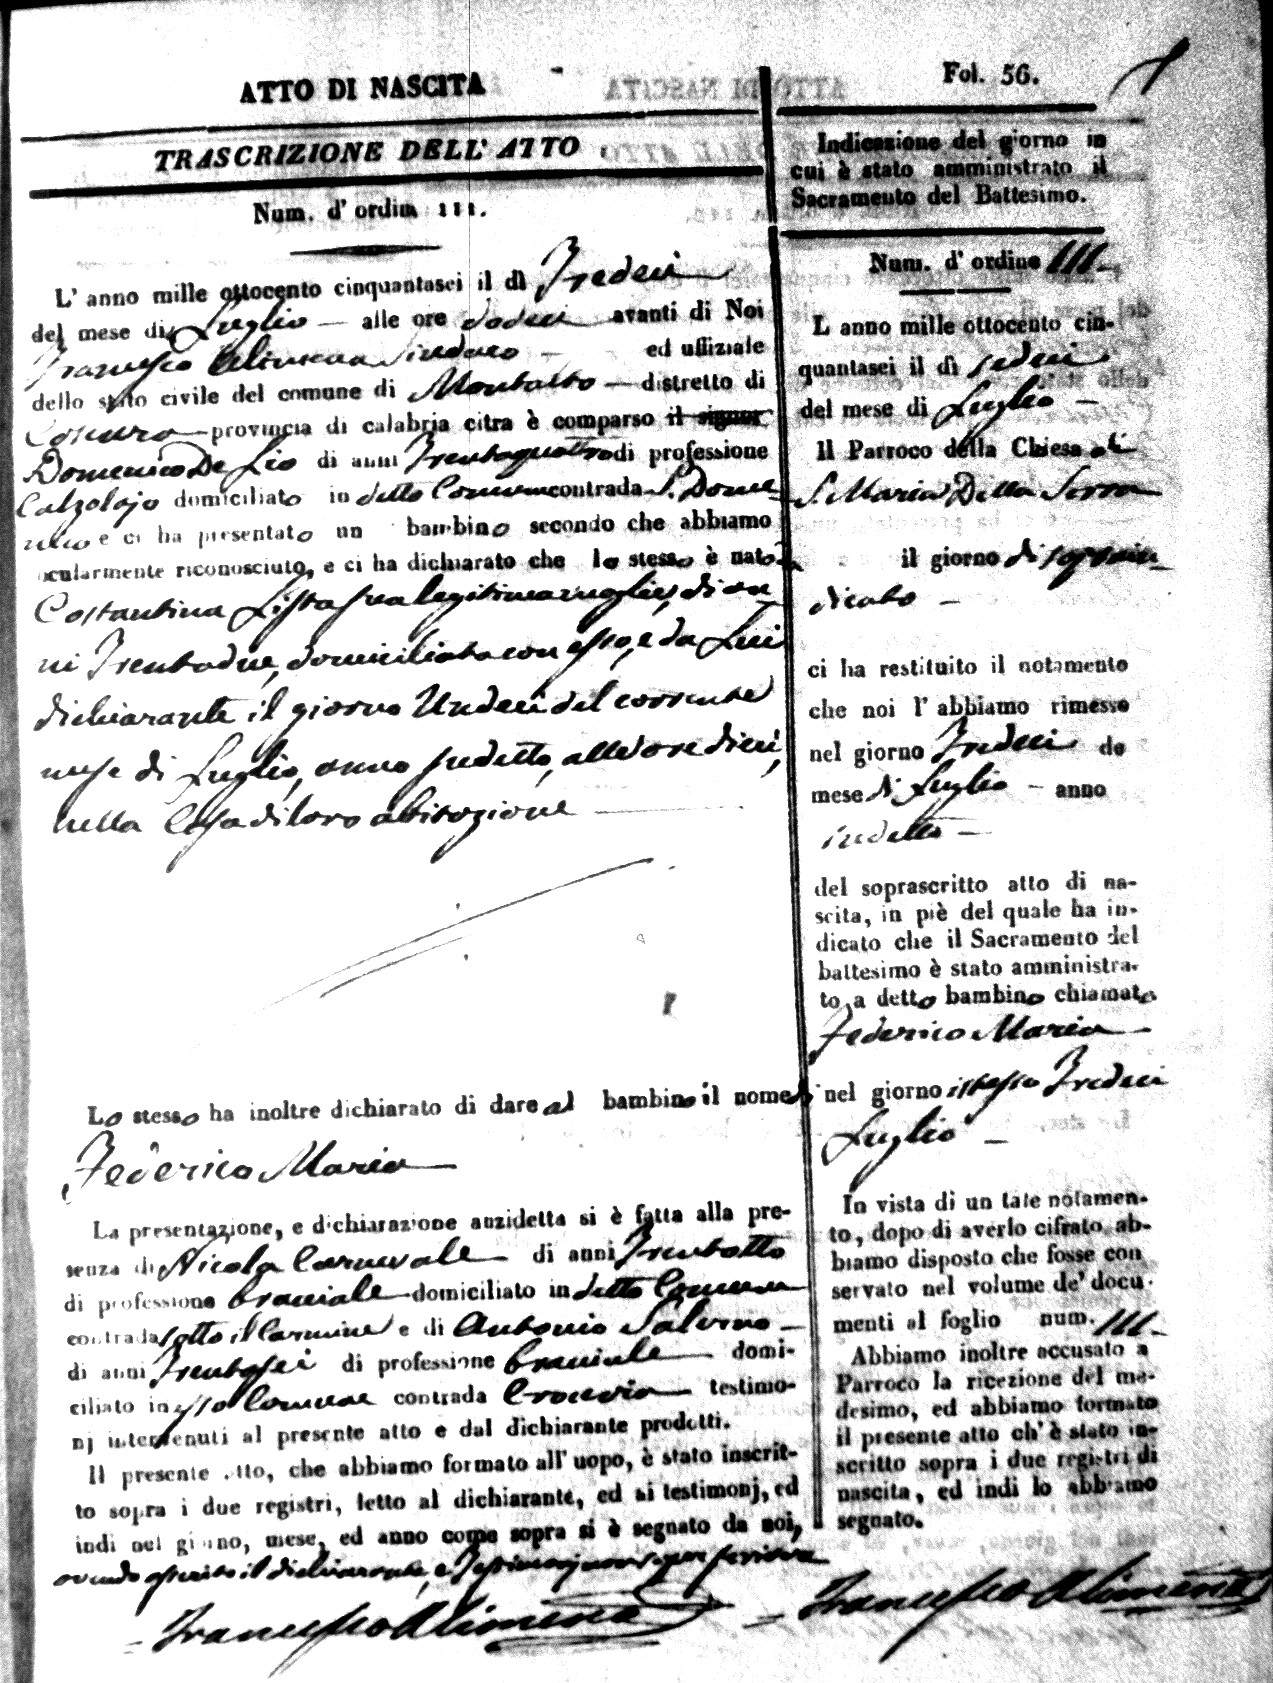 ATTO DI NASCITA
TRASCRIZIONE DELL' ATTO
Num. d' ordin 111.
L' anno mille ottocento cinquantasei il dì Tredeci
del mese di Luglio — alle ore dodeci avanti di Noi
Francesco Alimena Sindaco — ed uffiziale
dello stato civile del comune di Montalto — distretto di
Cosenza — provincia di calabria citra è comparso il signor
Domenico De Lio di anni Trentaquattro di professione
Calzolajo domiciliato in detto Comune contrada S. Dome-
nico e ci ha presentato un bambino secondo che abbiamo
ocularmente riconosciuto, e ci ha dichiarato che lo stesso è nato da
Costantina Lista sua legitima moglie, di an-
ni Trentadue, domiciliata con esso, e da Lui
dichiarante il giorno Undeci del corrente
mese di Luglio, anno sudetto, alle ore dieci,
nella Casa di loro abitazione —
Lo stesso ha inoltre dichiarato di dare al bambino il nome di
Federico Maria —
La presentazione, e dichiarazione anzidetta si è fatta alla pre-
senza di Nicola Carnevale — di anni Trentotto
di professione bracciale domiciliato in detto Comune
contrada sotto il Carmine e di Antonio Salerno —
di anni Trentasei di professione bracciale — domi-
ciliato in esso Comune contrada — testimo-
nj intervenuti al presente atto e dal dichiarante prodotti.
Il presente atto, che abbiamo formato all' uopo, è stato inscrit-
to sopra i due registri, letto al dichiarante, ed ai testimonj, ed
indi nel giorno, mese, ed anno come sopra si è segnato da noi,
avendo asserito il dichiarante, e Testimonj non saper scrivere
= Francesco Alimena
Fol. 56.
Indicazione del giorno in
cui è stato amministrato il
Sacramento del Battesimo.
Num. d' ordine 111 —
L anno mille ottocento cin-
quantasei il dì sedeci
del mese di Luglio —
Il Parroco della Chiesa di
S. Maria Della Serra
il giorno di sopra in-
dicato —
ci ha restituito il notamento
che noi l' abbiamo rimesso
nel giorno Tredeci de
mese di Luglio — anno
sudetto —
del soprascritto atto di na-
scita, in piè del quale ha in-
dicato che il Sacramento del
battesimo è stato amministra-
to a detto bambino chiamato
Federico Maria —
nel giorno istesso Tredeci
Luglio —
In vista di un tale notamen-
to, dopo di averlo cifrato, ab-
biamo disposto che fosse con
servato nel volume de' docu-
menti al foglio num. 111 —
Abbiamo inoltre accusato a
Parroco la ricezione del me-
desimo, ed abbiamo formato
il presente atto ch' è stato in-
scritto sopra i due registri di
nascita, ed indi lo abbiamo
segnato.
= Francesco Alimena